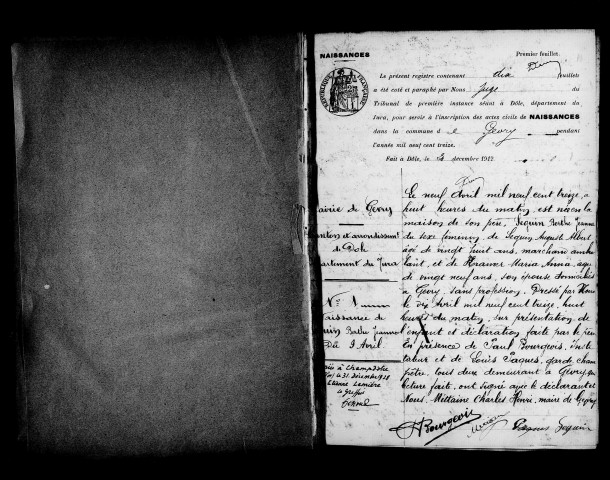 NAISSANCES
Premier feuillet.
RÉPUBLIQUE FRANÇAISE
Le présent registre contenant dix feuillets
a été coté et paraphé par Nous Juge du
Tribunal de première instance séant à Dôle, département du
Jura, pour servir à l'inscription des actes civils de NAISSANCES
dans la commune de Gevry pendant
l'année mil neuf cent treize.
Fait à Dôle, le 2 décembre 1912
airie de Gevry
anton et arrondissement
de Dole
partement du Jura
No 1
aissance de
uin Berthe Jeanne
Du 9 Avril
à Champdole
le 31 décembre 1938
Etienne
Le neuf Avril mil neuf cent treize, a
huit heures du matin, est née en la
maison de son père, Seguin Berthe Jeanne
du sexe féminin, de Seguin August Albert
âgé de vingt huit ans, marchand ambu
lant, et de Kramer Maria Anna, agée
de vingt neuf ans, son épouse domiciliés
à Gevry, sans profession. Dressé par Nous
le dix Avril mil neuf cent treize, huit
heures du matin, sur présentation de
l'enfant et déclaration faite par le père
En présence de Paul Bourgeois, insti
tuteur et de Louis Paques, garde cham
pêtre, tous deux demeurant à Gevry, qui
lecture faite, ont signé avec le déclarant et
Nous. Mittaine Charles Henri, maire de Gevry
Bourgeois Paques Seguin